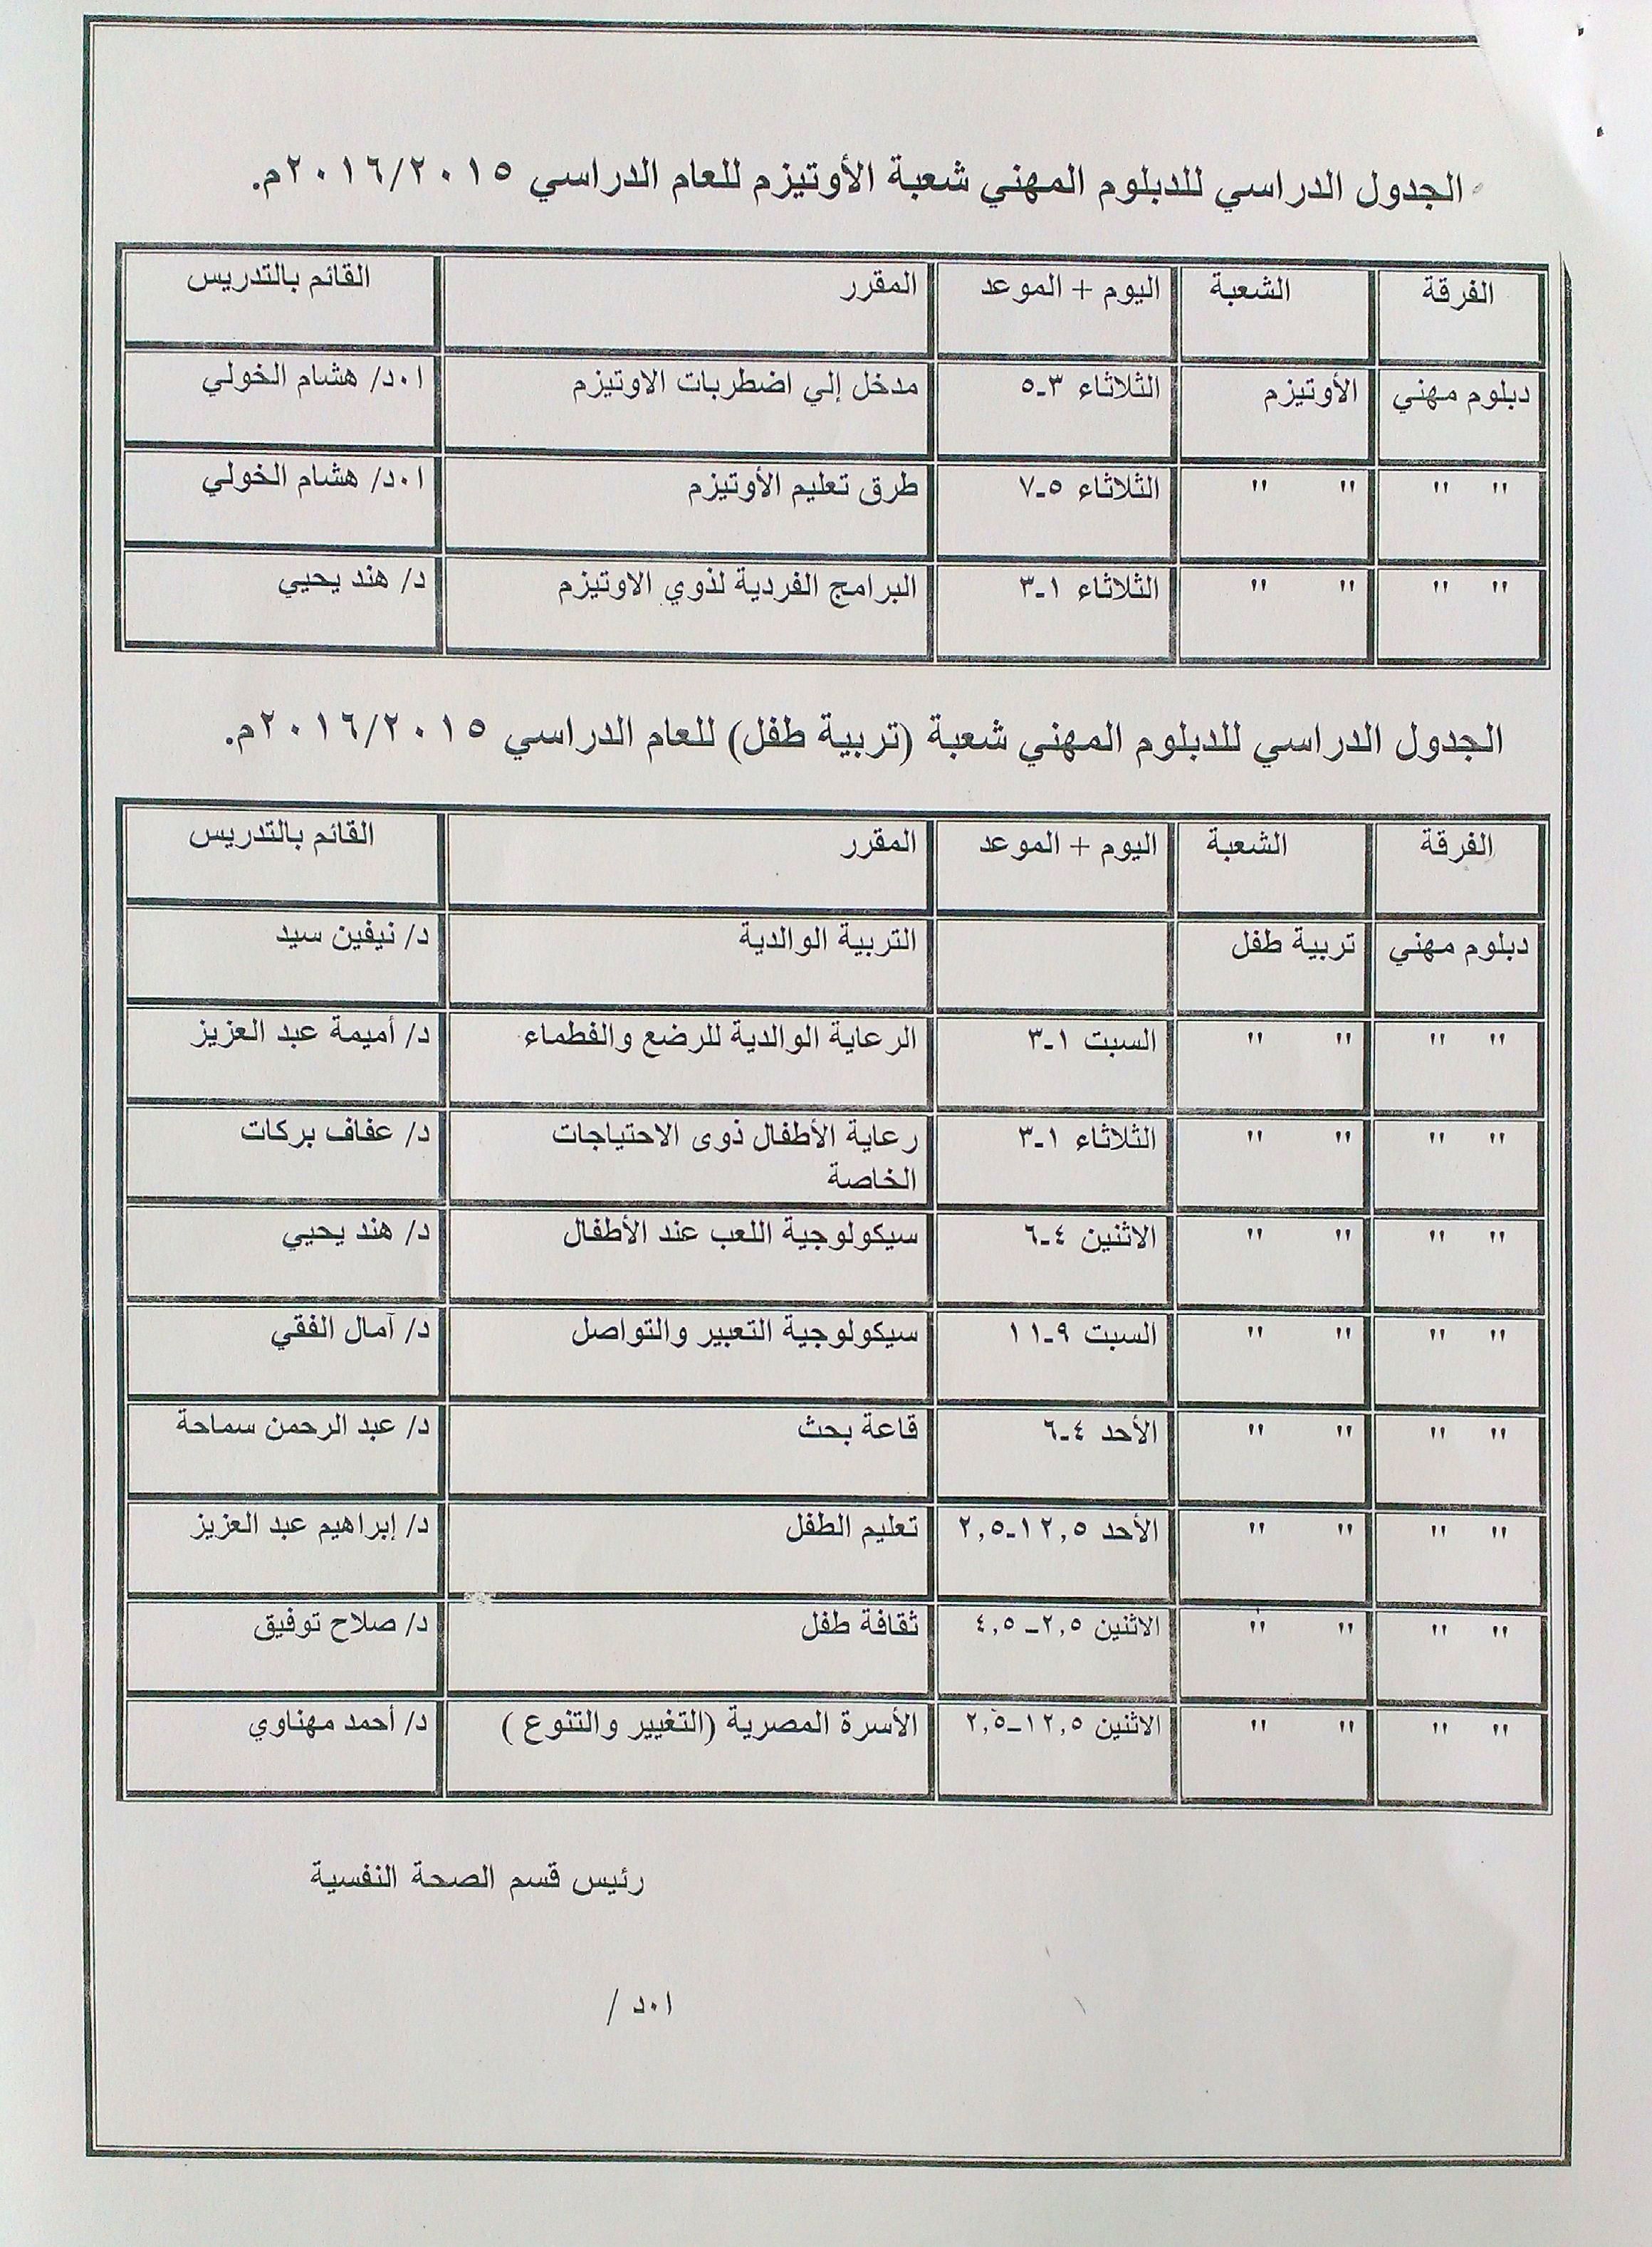 الجدول الدراسي للدبلوم المهني شعبة الأوتيزم للعام الدراسي ٢٠١٦/٢٠١٥م.
الفرقة الشعبة اليوم + الموعد المقرر القائم بالتدريس
دبلوم مهني الأوتيزم الثلاثاء ٣-٥ مدخل إلي اضطربات الاوتيزم ا٠د/ هشام الخولي
" " " " الثلاثاء ٥-٧ طرق تعليم الأوتيزم ا٠د/ هشام الخولي
" " " " الثلاثاء ١-٣ البرامج الفردية لذوي الاوتيزم د/ هند يحيي
الجدول الدراسي للدبلوم المهني شعبة (تربية طفل) للعام الدراسي ٢٠١٦/٢٠١٥م.
الفرقة الشعبة اليوم + الموعد المقرر القائم بالتدريس
دبلوم مهني تربية طفل التربية الوالدية د/ نيفين سيد
" " " " السبت ١-٣ الرعاية الوالدية للرضع والفطماء د/ أميمة عبد العزيز
" " " " الثلاثاء ١-٣ رعاية الأطفال ذوى الاحتياجات د/ عفاف بركات
الخاصة
" " " " الاثنين ٤-٦ سيكولوجية اللعب عند الأطفال د/ هند يحيي
" " " " السبت ٩-١١ سيكولوجية التعبير والتواصل د/ آمال الفقي
" " " " الأحد ٤-٦ قاعة بحث د/ عبد الرحمن سماحة
" " " " الأحد ١٢,٥-٢,٥ تعليم الطفل د/ إبراهيم عبد العزيز
" " " " الاثنين ٢,٥-٤,٥ ثقافة طفل د/ صلاح توفيق
" " " " الاثنين ١٢,٥-٢,٥ الأسرة المصرية (التغيير والتنوع ) د/ أحمد مهناوي
رئيس قسم الصحة النفسية
ا٠د /